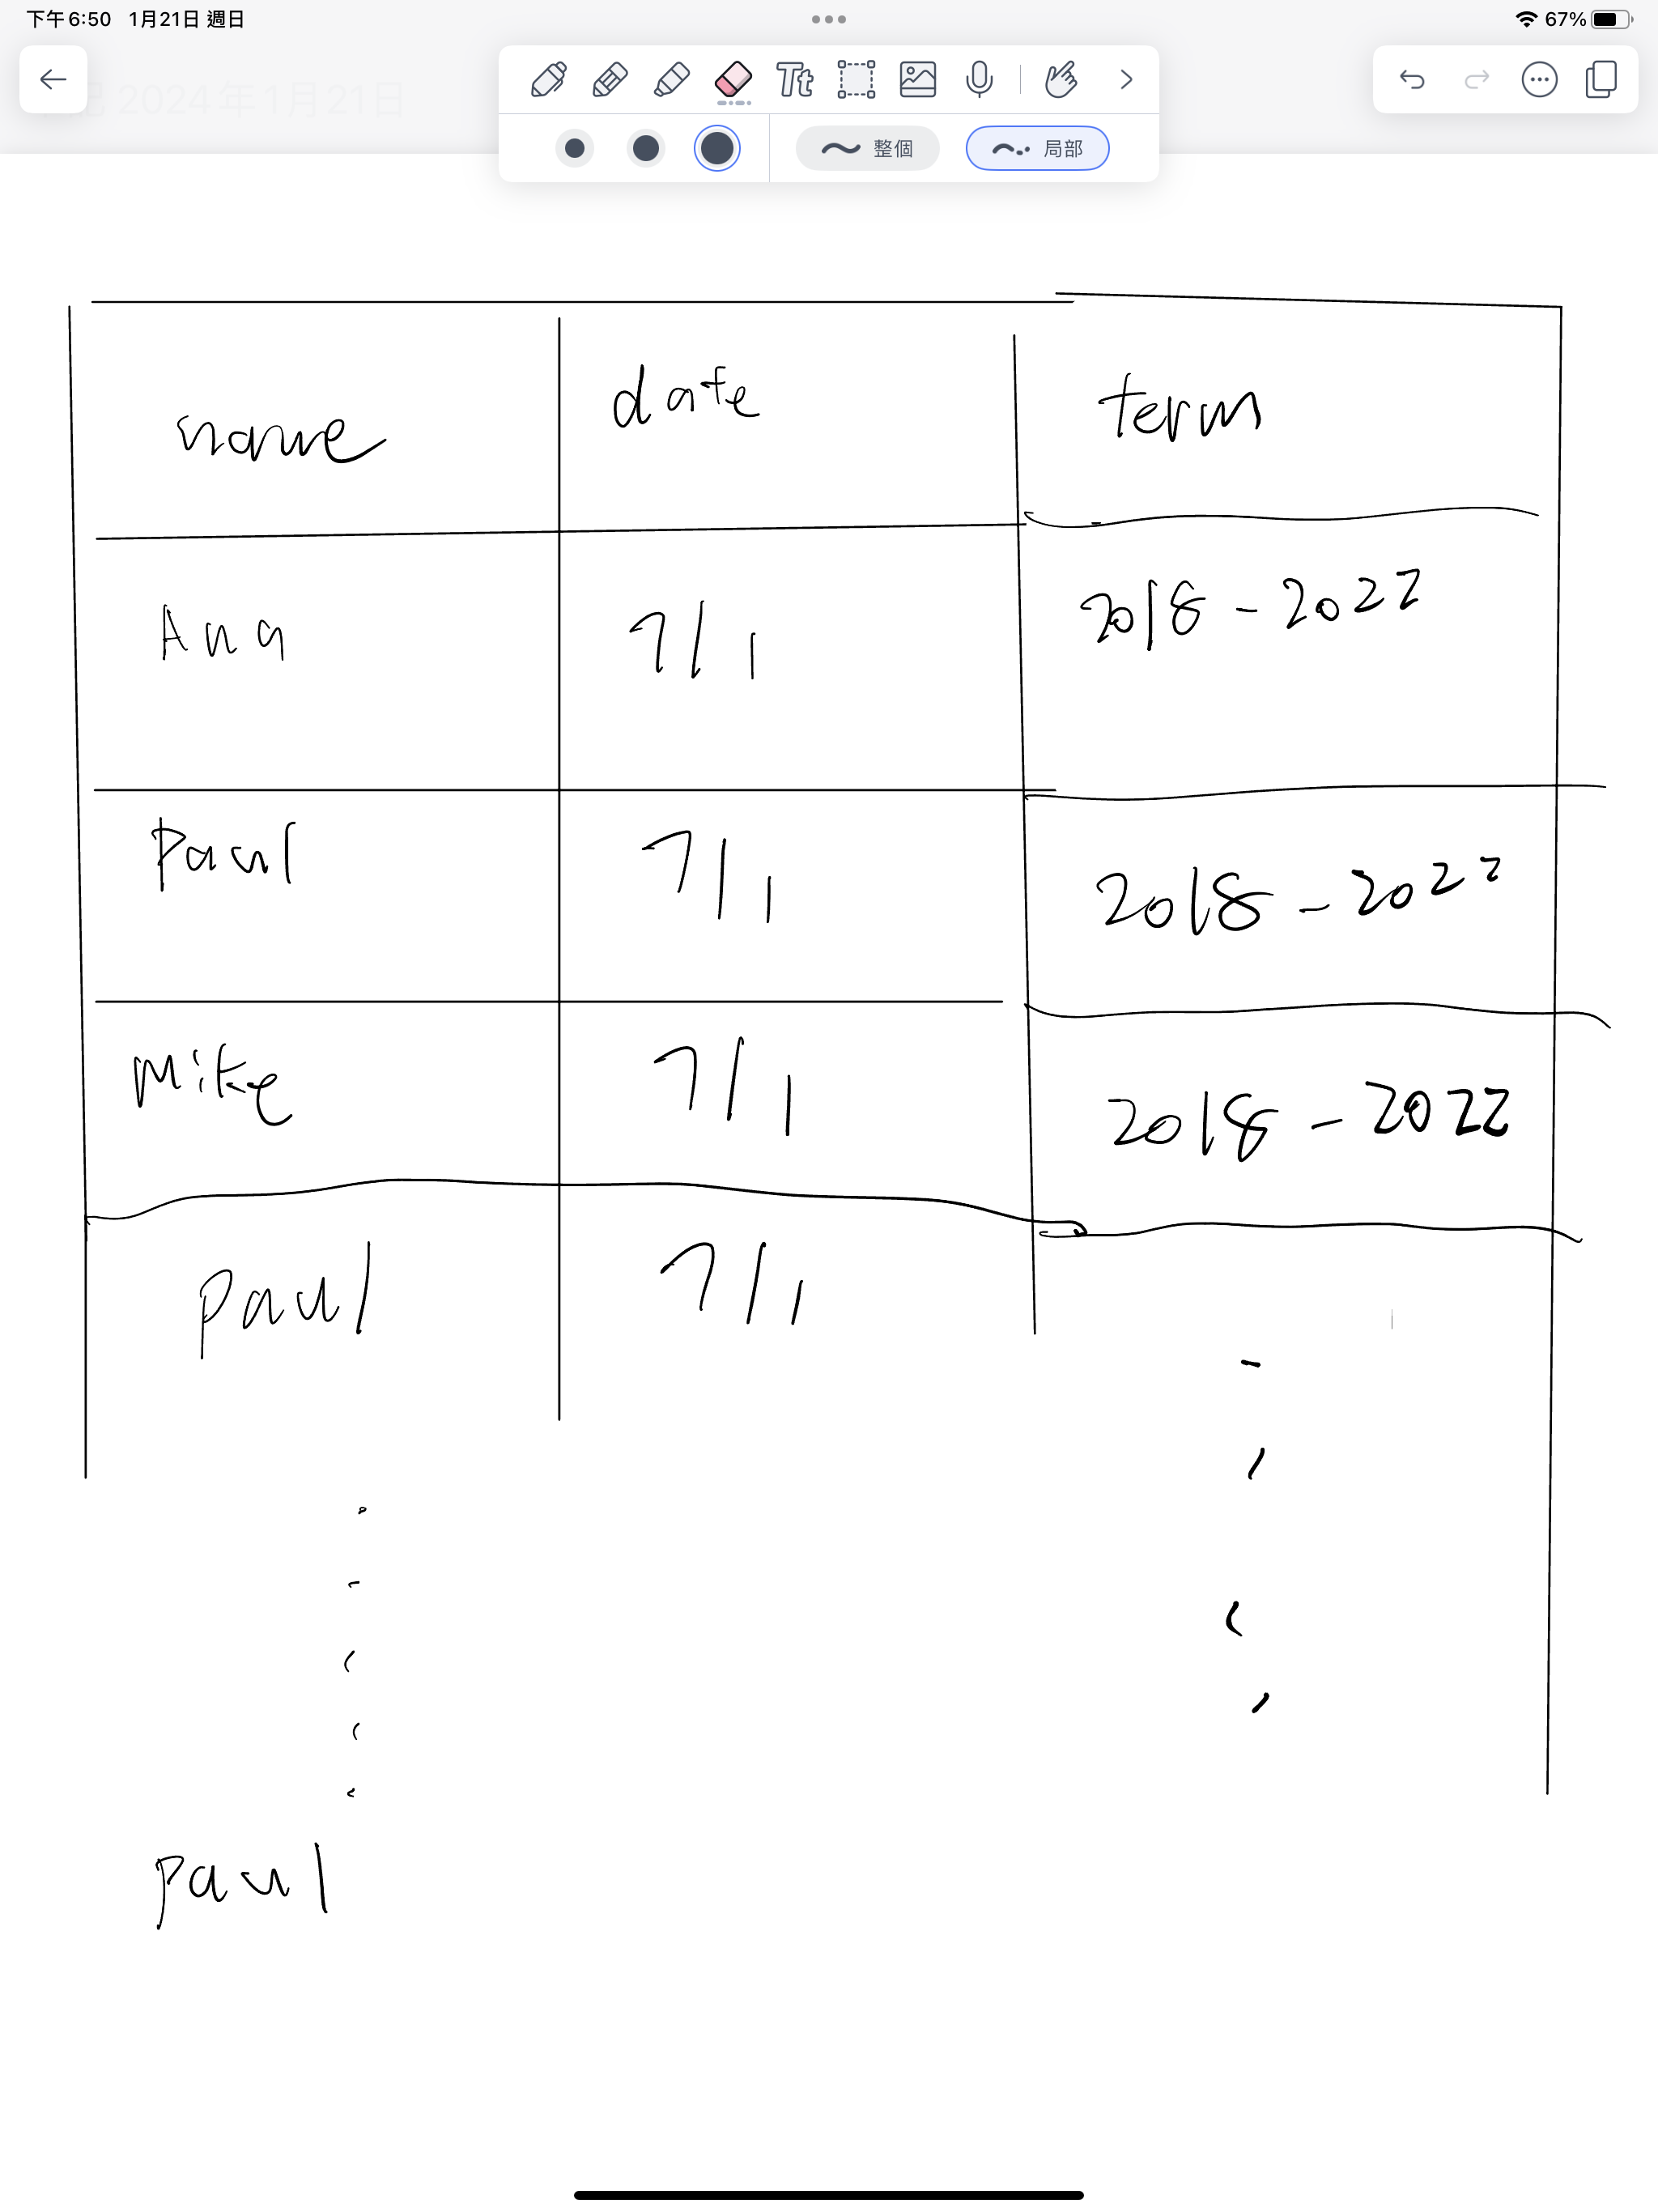 下午6:50 1月21日 週日
67%
2024年1月21日
Tt
整個 局部
name date term
Ana 7/1 2018-2022
Paul 7/1 2018-2022
Mike 7/1 2018-2022
paul 7/1
paul